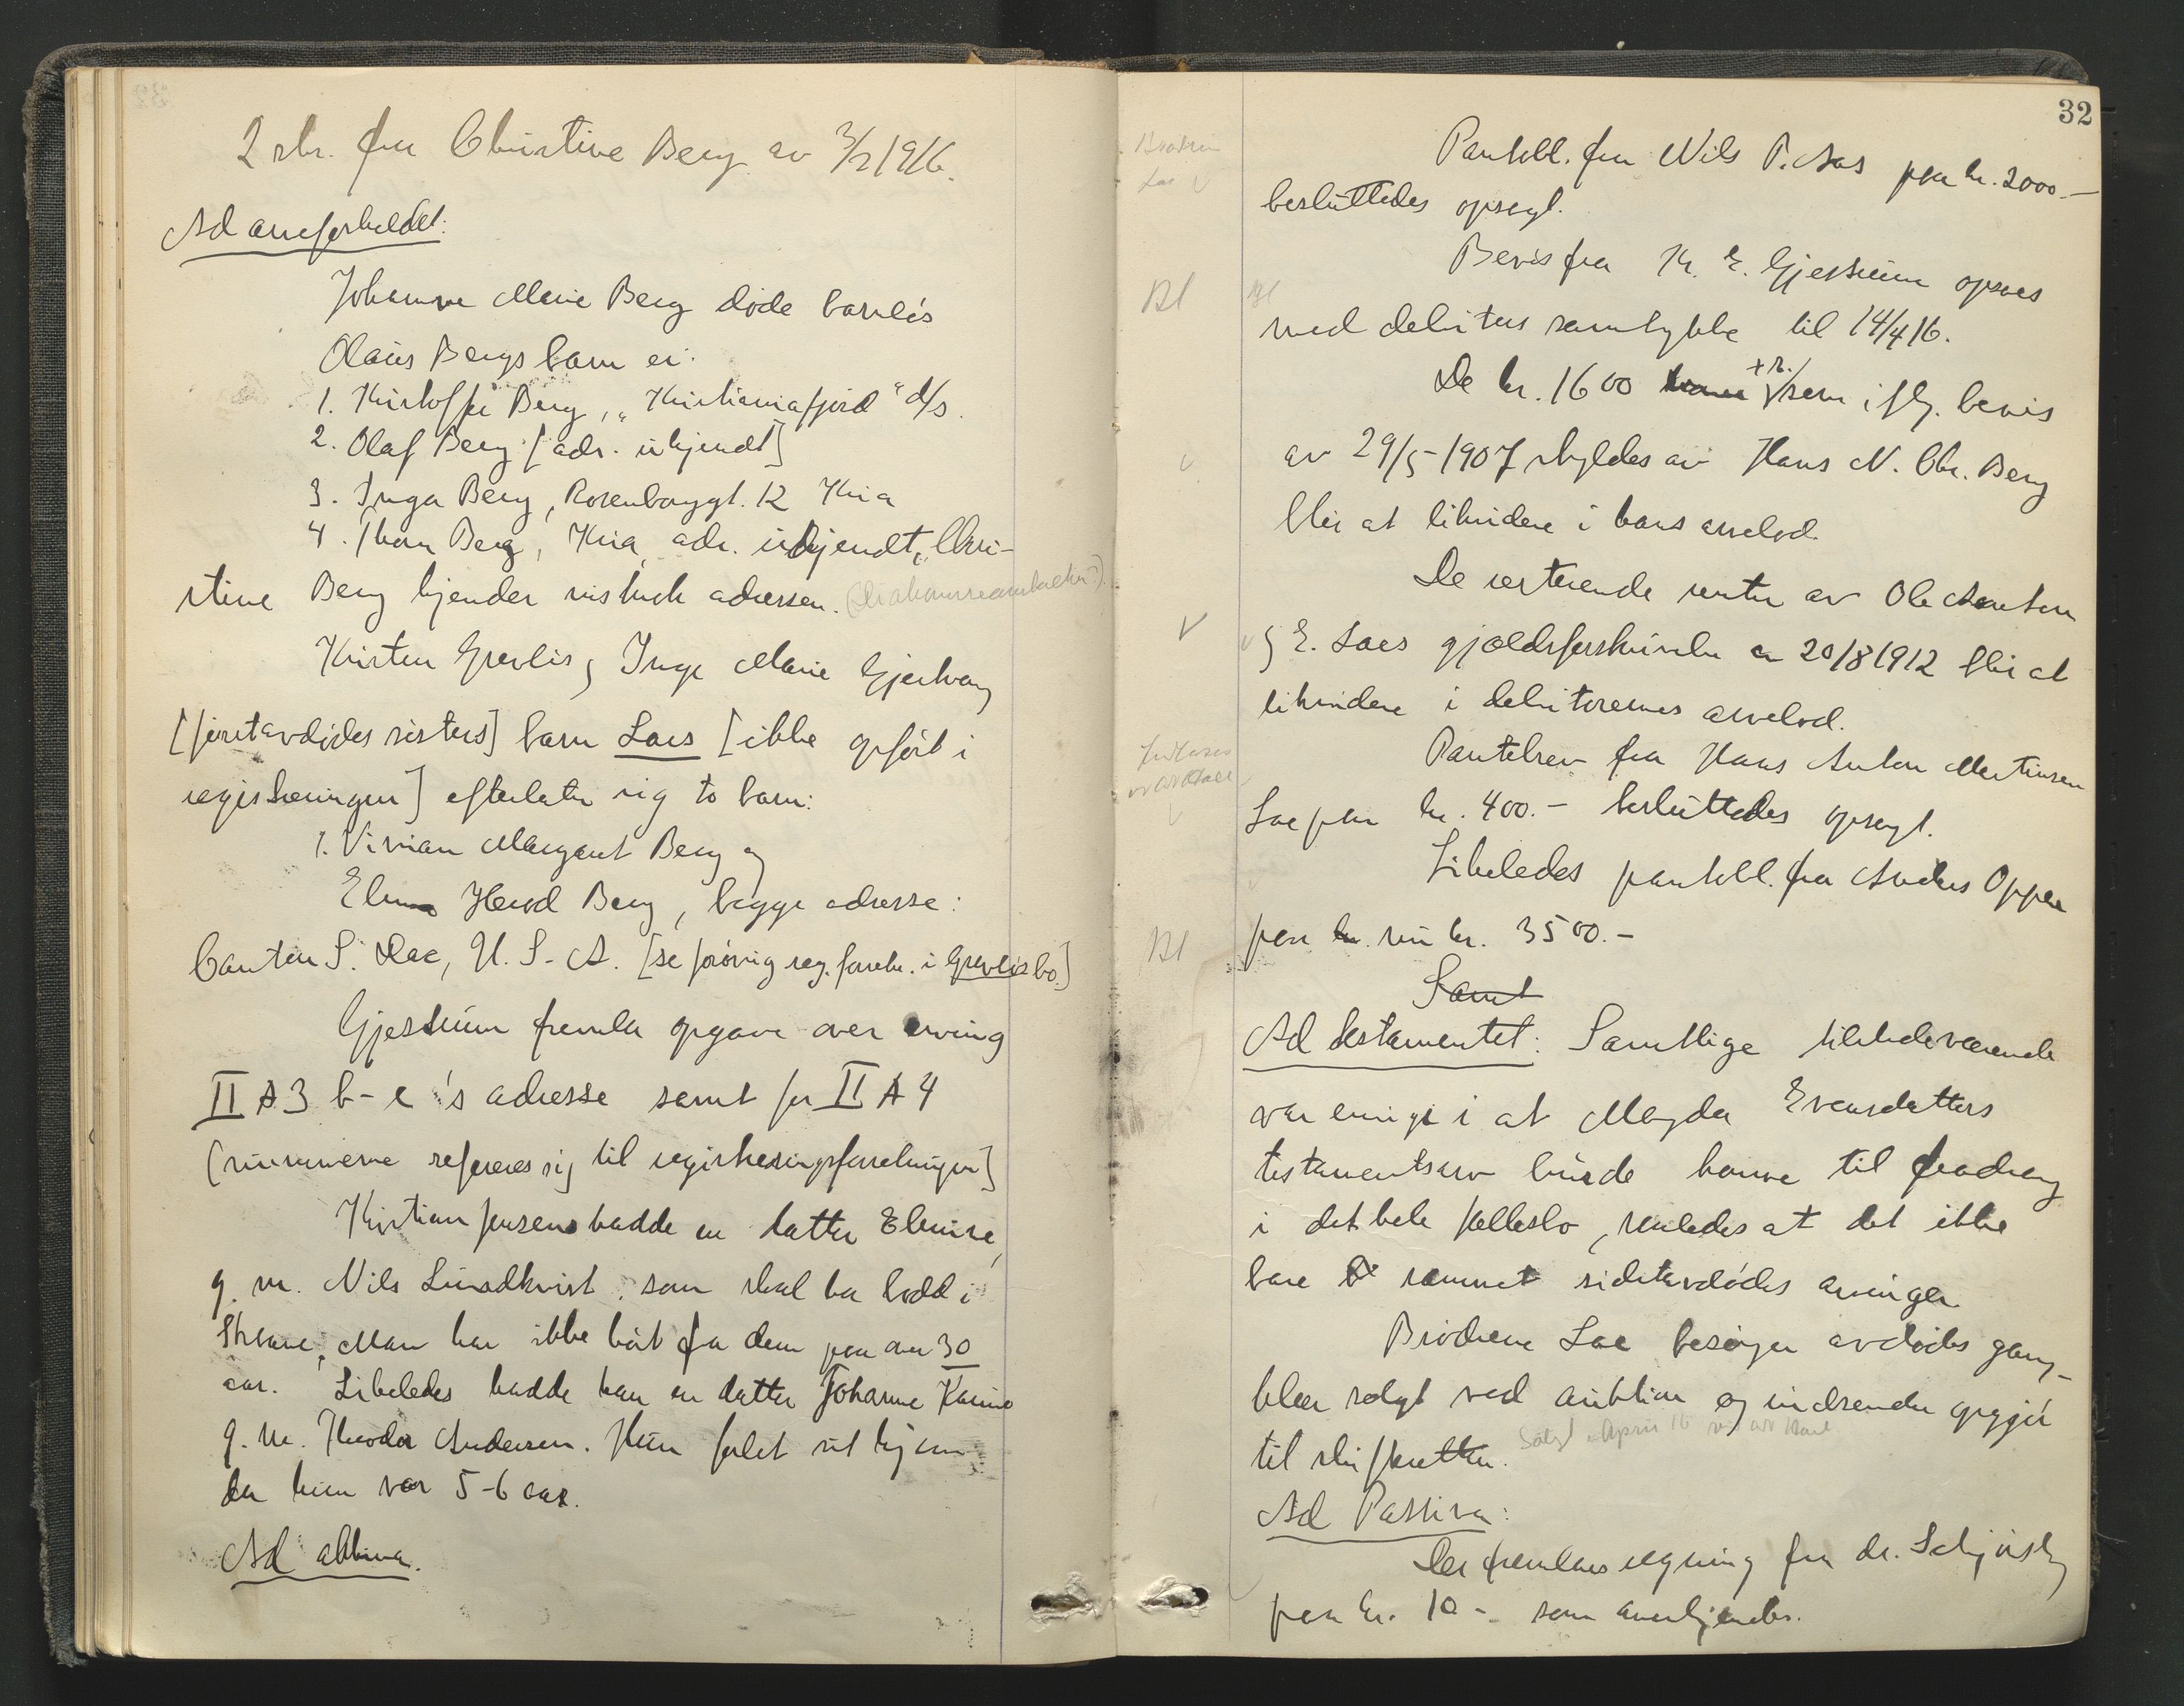 2 skr. fra Christine Berg av 3/2 1916.
Ad arveforholdet:
Johanne Marie Berg døde barnløs
Olaus Bergs barn er:
1. Kristoffer Berg, "Kristianiafjord" d/s.
2. Olaf Berg [adr. ukjendt]
3. Inga Berg, Rosenborggt. 12 Kria
4. Thora Berg, Kria, adr. ukjendt, Chri-
stine Berg kjender visstnok adressen.
Kristen Grevlis og Inge Marie Gjerkvang
[førstavdødes søsters] barn Lars [ikke opført i
registreringen] efterlater sig to barn:
1. Vivian Margaret Berg og
Elmo Herod Berg, begge adresse:
Canton S. Dac, U. S. A. [se forøvrig reg. forretn. i Grevlis bo.]
Gjestrum fremla opgave over arving
II A 3 b-e's adresse samt for II A 4
(numrene referes sig til registreringsforretningen]
Kristian Jensen hadde en datter Elmire,
g. m. Nils Lundkvist som skal ha bodd i
Skaane. Man har ikke hørt fra dem paa over 30
aar. Likeledes hadde han en datter Johanne Karine
g. m. Theodor Andersen. Hun forlot sit hjem
da hun var 5-6 aar.
Ad aktiva.
32
Brødrene
Lae V
Pantobl. fra Nils P. Aas paa kr. 2000.-
besluttedes opsagt.
Bevis fra K. E. Gjestrum opsaes
Bl
med debitors samtykke til 14/4 16.
De kr. 1600 + r. som iflg. bevis
av 29/5-1907 skyldes av Hans N. Chr. Berg
blir at likvidere i hans arvelod.
De resterende renter av Ole Anton
V
og E. Laes gjældsforskrivelse av 20/8 1912 blir at
likvidere i debitorernes arvelod.
Pantebrev fra Hans Anton Martinsen
Lae paa kr. 400.- besluttedes opsagt.
Likeledes pantobl. fra Anders Oppen
Bl
paa kr. nu kr. 3500.-
Samt
Ad testamentet: Samtlige tilstedeværende
var enige i at Magda Evensdatters
testamentsarv burde komme til fradrag
i det hele fællesbo, saaledes at det ikke
bare rammet sidstavdødes arvinger.
Brødrene Lae besørger avdødes gang-
klær solgt ved auktion og indsender opgjør
til skifteretten. Solgt April 16
Ad Passiva:
Der fremlaes regning fra dr. Schjøsby
paa kr. 10- som anerkjendes.